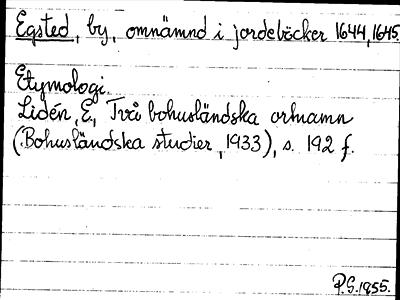 Egsted, by, omnämnd i jordeböcker 1644, 1645
Etymologi.
Lidén, E, Två bohusländska ortnamn
(Bohusländska studier, 1933), s. 192 f.
P.G. 1955.